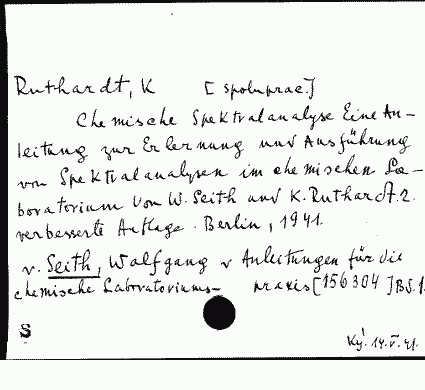 Ruthardt, K [spoluprac.]
Chemische Spektralanalyse Eine An-
leitung zur Erlernung und Ausführung
von Spektralanalysen im chemischen La-
boratorium von W. Seith und K. Ruthardt. 2.
verbesserte Auflage. Berlin, 1941.
v. Seith, Wolfgang v Anleitungen für die
chemische Laboratoriums- praxis [156304] Bd. 1.
S
Ký! 14.V.41.